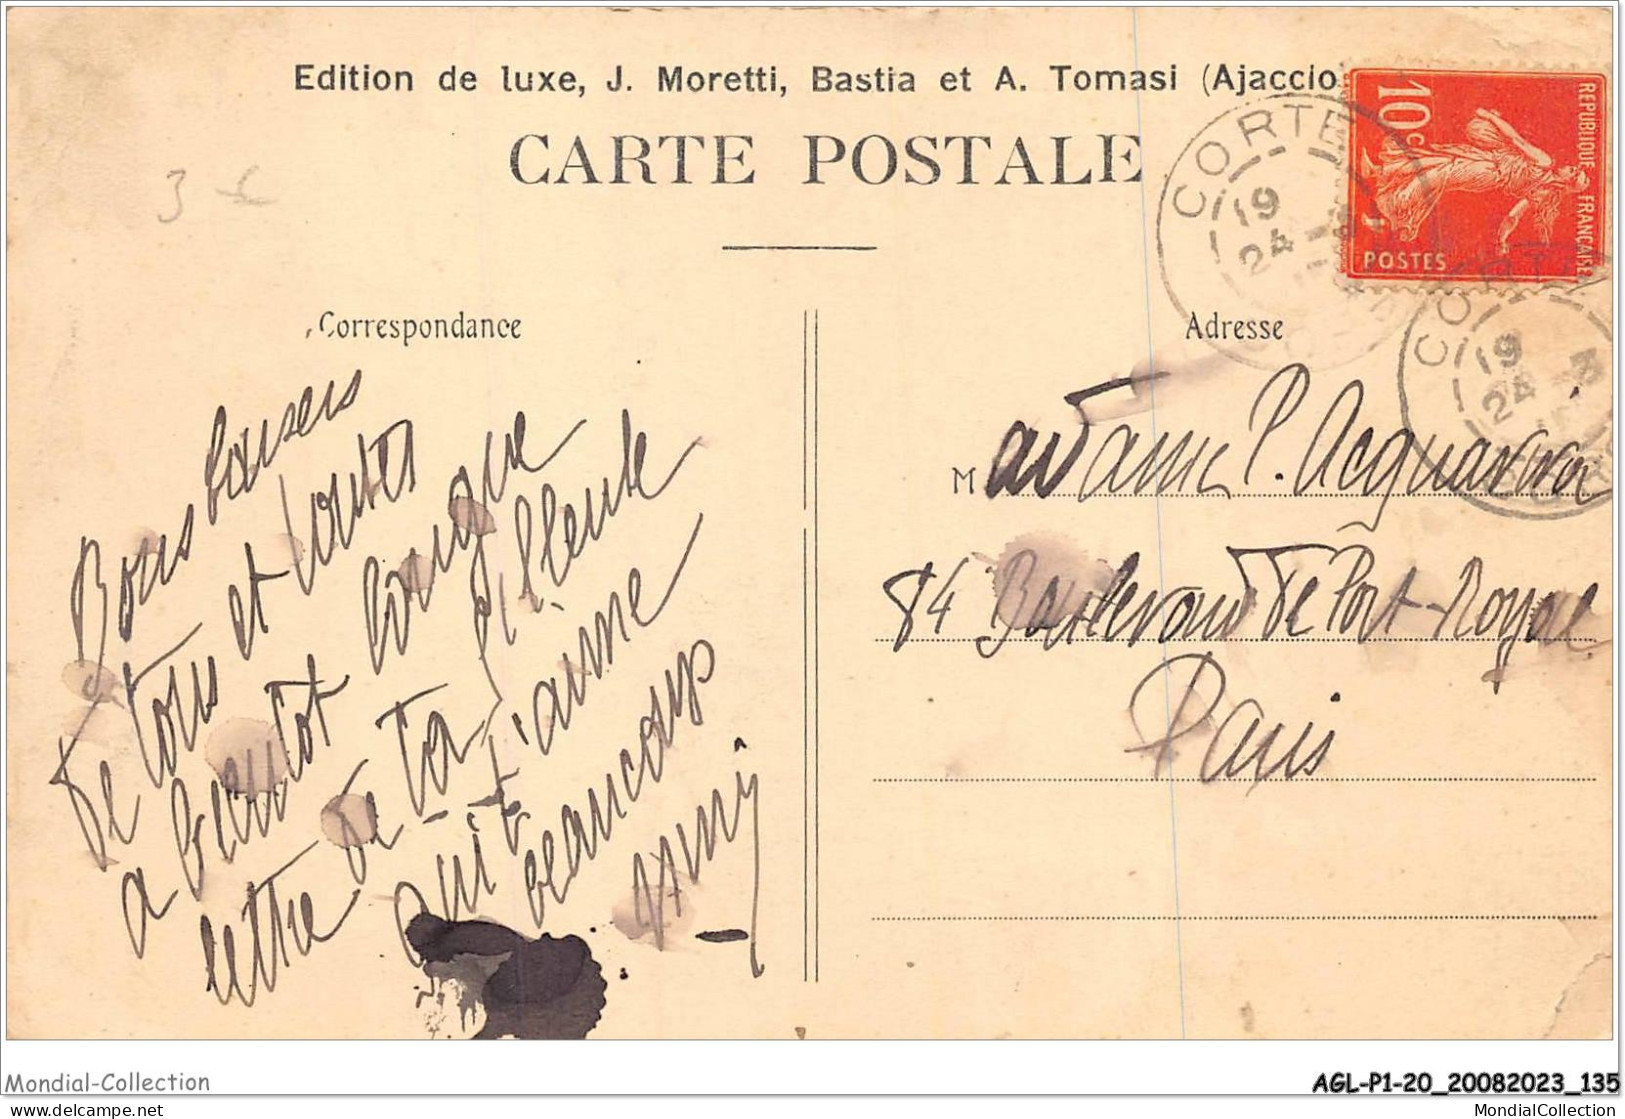 Edition de luxe, J. Moretti, Bastia et A. Tomasi (Ajaccio
CARTE POSTALE
3 €
CORTE
19
24 -3
10c
REPUBLIQUE FRANÇAISE
POSTES
CORTE
19
24 -3
Correspondance
Bons baisers
de tous et toutes
a bientôt longue
lettre de ta filleule
qui t'aime
beaucoup
Adresse
Madame P. Acquaviva
84 Boulevard de Port-Royal
Paris
Mondial-Collection
AGL-P1-20_20082023_135
www.delcampe.net
MondialCollection